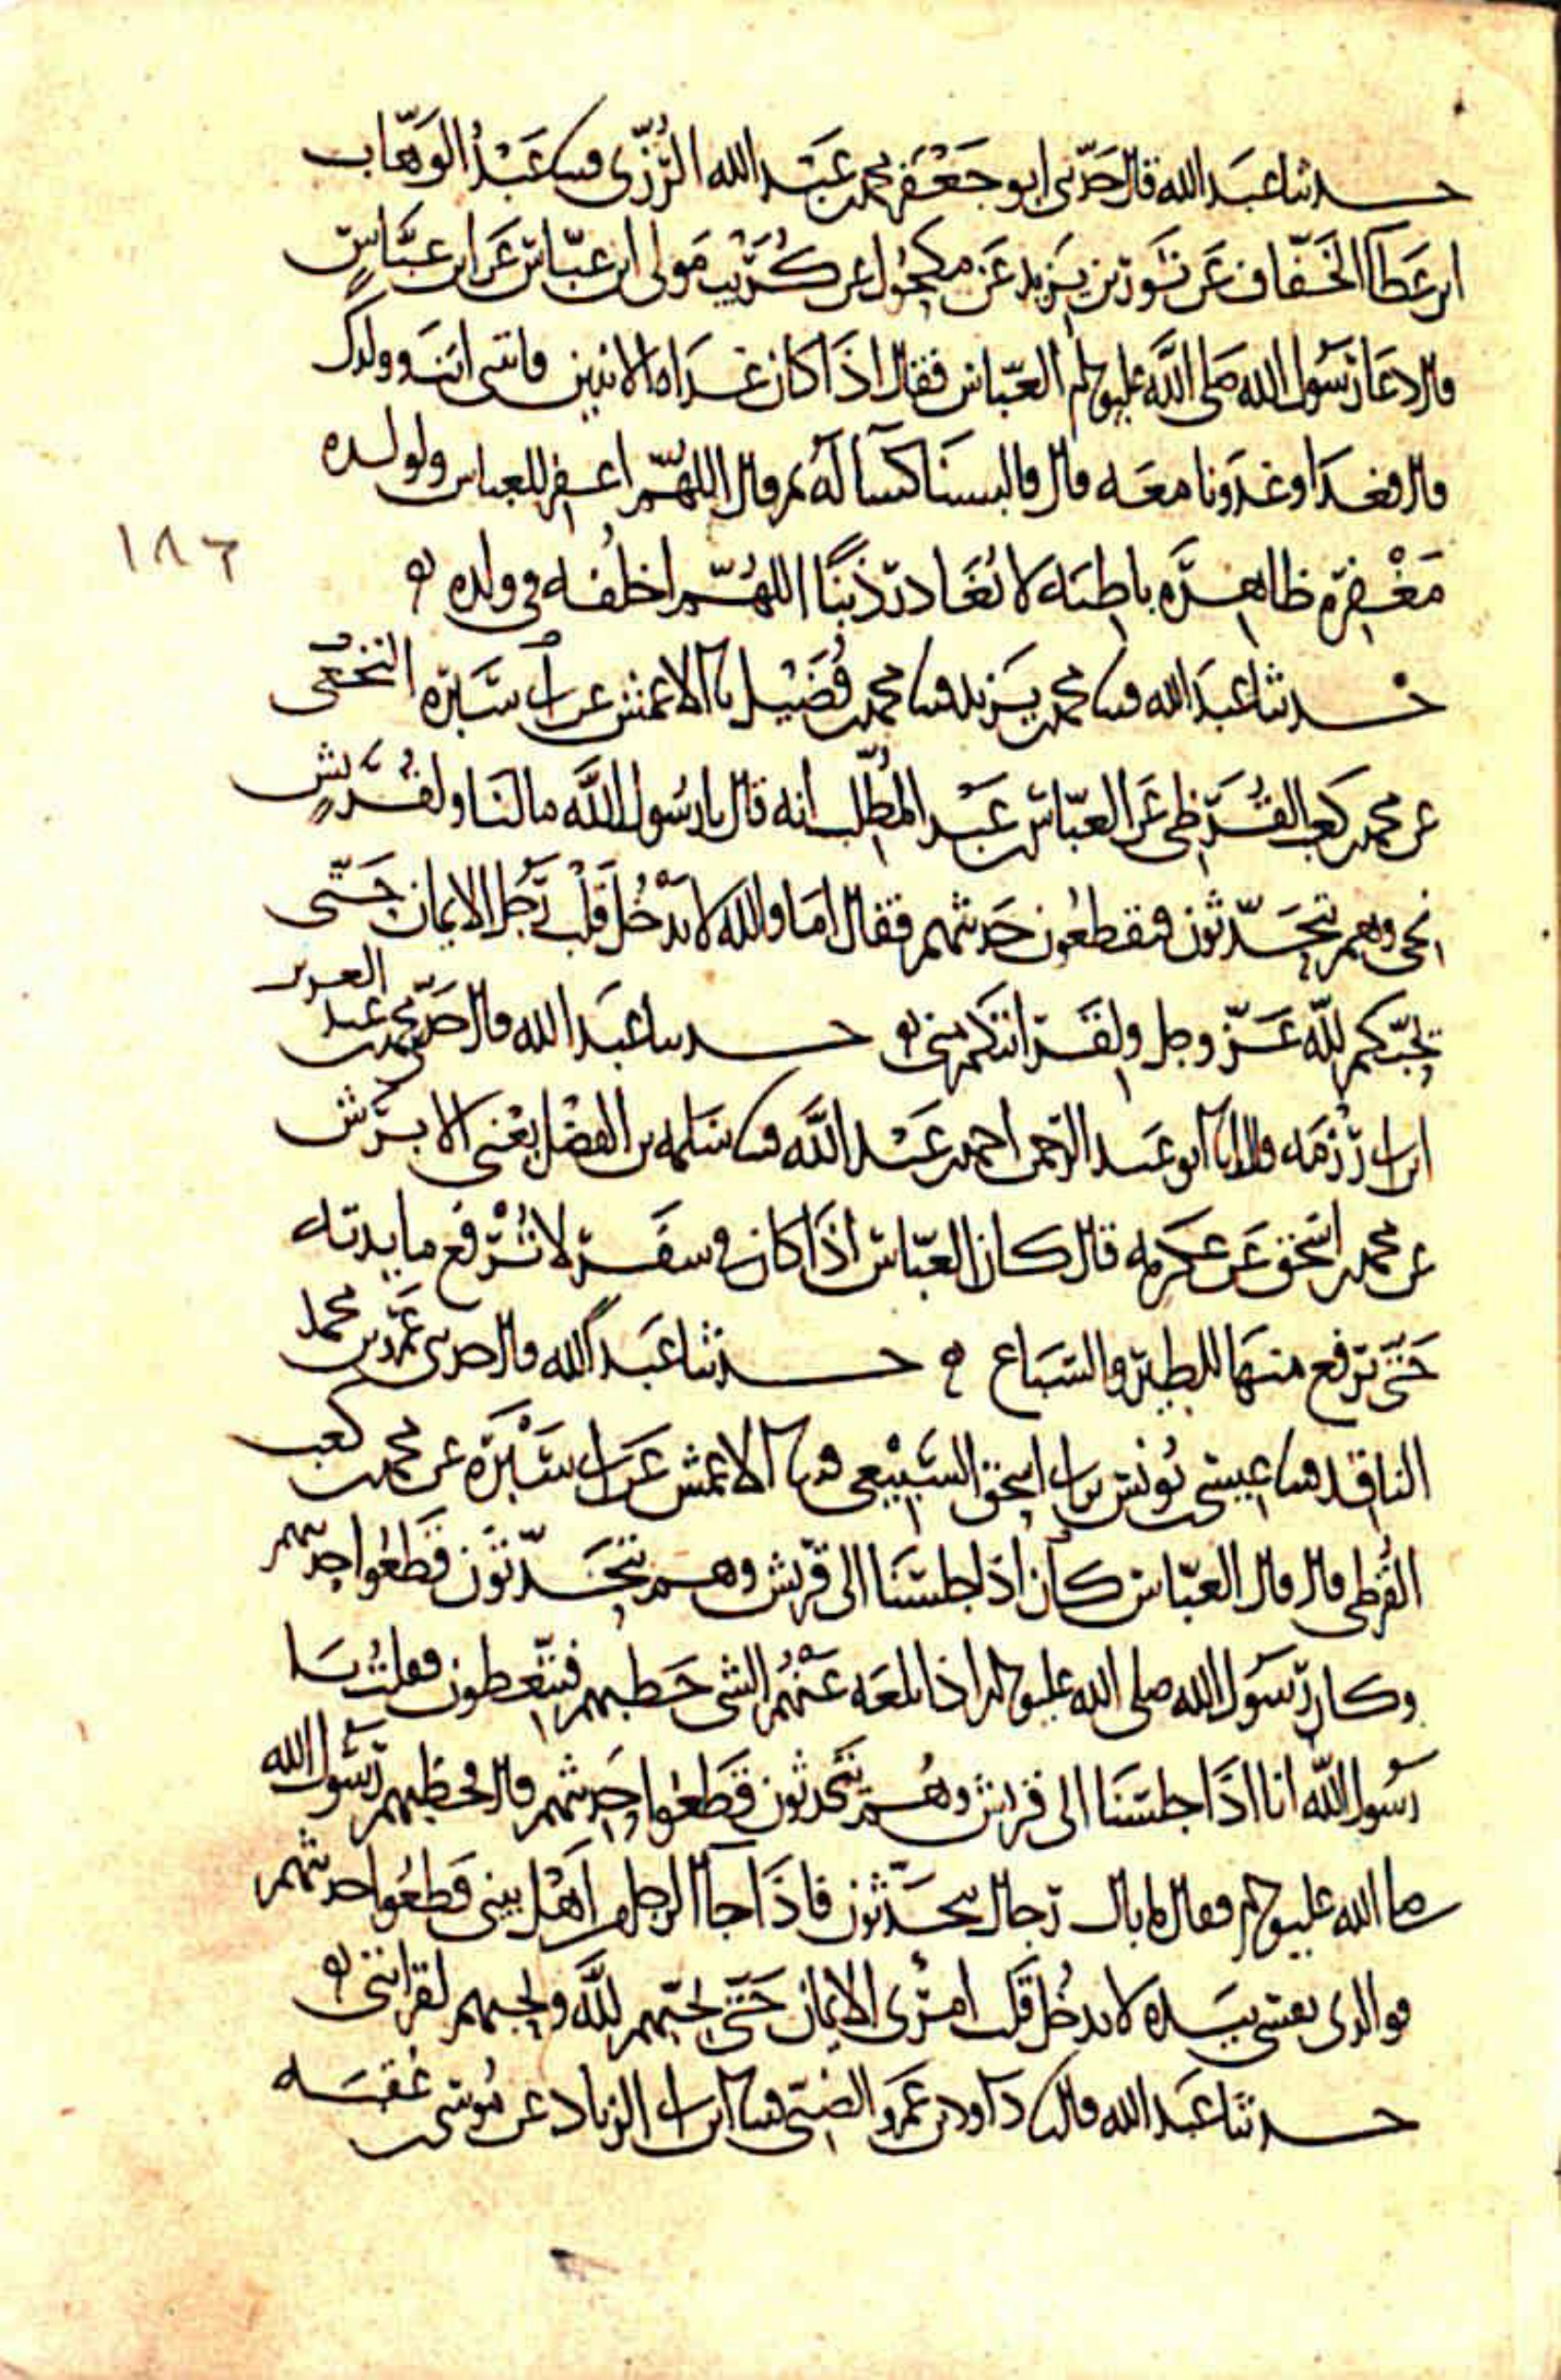 حدثنا عبد الله قال حدثني ابو جعفر محمد بن عبد الله الرزى قثنا عبد الوهاب
ابن عطآ الخفاف عن ثور بن يزيد عن مكحول عن كريب مولى ابن عباس عن ابن عباس
قال دعا رسول الله صلى الله عليه وسلم العباس فقال اذا كان غداه الاثنين فأتنى انت وولدك
قال فغدا وغدونا معه قال فالبسنا كسآ له ثم قال اللهم اغفر للعباس ولولده
مغفرة ظاهرة باطنه لا تغادر ذنبا اللهم اخلفه فى ولده
١٨٦
حدثنا عبد الله قثنا محمد بن يزيد قثنا محمد بن فضيل نا الاعمش عن ابى سبرة النخعى
عن محمد بن كعب القرظى عن العباس بن عبد المطلب انه قال يا رسول الله ما لنا ولقريش
نجى وهم يتحدثون فيقطعون حديثهم فقال اما والله لا يدخل قلب رجل الايمان حتى
يحبكم لله عز وجل ولقرابتكم منى حدثنا عبد الله قال حدثنى محمد بن عبد العزيز
ابن ابى رزمه قال انا ابو عبد الرحمن احمد بن عبد الله قثنا سلمه بن الفضل يعنى الابرش
عن محمد بن اسحق عن عكرمه قال كان العباس اذا كان فى سفر لا ترفع مايدته
حتى يرفع منها للطير والسباع حدثنا عبد الله قال حدثنى عمرو بن محمد
الناقد قثنا عيسى بن يونس بن ابى اسحق السبيعى قثنا الاعمش عن ابى سبرة عن محمد بن كعب
القرظى قال قال العباس كان اذا جلسنا الى قريش وهم يتحدثون قطعوا حديثهم
وكان رسول الله صلى الله عليه وسلم اذا بلغه عنهم الشى خطبهم فيتعظون فقلت يا
رسول الله انا اذا جلسنا الى قريش وهم يتحدثون قطعوا حديثهم قال فخطبهم رسول الله
صلى الله عليه وسلم فقال ما بال رجال يتحدثون فاذا جآ الرجل من اهل بيتى قطعوا حديثهم
فوالذى نفسى بيده لا يدخل قلب امرى الايمان حتى يحبهم لله ويحبهم لقرابتى
حدثنا عبد الله قال نا داود بن عمرو الضبى قثنا ابن ابى الزناد عن موسى بن عقبه